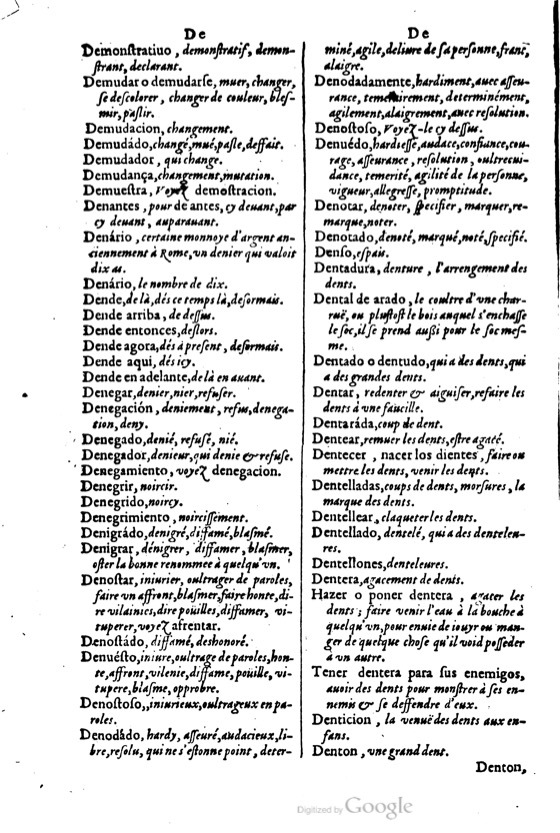 De
Demonstratiuo, demonstratif, demon-
strant, declarant.
Demudar o demudarse, muer, changer,
se descolorer, changer de couleur, bles-
mir, paslir.
Demudacion, changement.
Demudádo, changé, mué, pasle, deffait.
Demudador, qui change.
Demudança, changement, mutation.
Demuestra, Voyez demostracion.
Denantes, pour de antes, cy deuant, par
cy deuant, auparauant.
Denário, certaine monnoye d'argent an-
ciennement à Rome, vn denier qui valoit
dix as.
Denário, le nombre de dix.
Dende, de là, dés ce temps là, desormais.
Dende arriba, de dessus.
Dende entonces, deslors.
Dende agora, dés à present, desormais.
Dende aqui, dés icy.
Dende en adelante, de là en auant.
Denegar, denier, nier, refuser.
Denegación, deniement, refus, denega-
tion, deny.
Denegado, denié, refusé, nié.
Denegador, denieur, qui denie & refuse.
Denegamiento, voyez denegacion.
Denegrir, noircir.
Denegrido, noircy.
Denegrimiento, noircissement.
Denigrádo, denigré, diffamé, blasmé.
Denigrar, dénigrer, diffamer, blasmer,
oster la bonne renommee à quelqu'vn.
Denostar, iniurier, oultrager de paroles,
faire vn affront, blasmer, faire honte, di-
re vilainies, dire poüilles, diffamer, vi-
tuperer, voyez afrentar.
Denostádo, diffamé, deshonoré.
Denuésto, iniure, oultrage de paroles, hon-
te, affront, vilenie, diffame, poüille, vi-
tupere, blasme, opprobre.
Denostoso,, iniurieux, oultrageux en pa-
roles.
Denodádo, hardy, asseuré, audacieux, li-
bre, resolu, qui ne s'estonne point, deter-
De
miné, agile, deliure de sa personne, franc,
alaigre.
Denodadamente, hardiment, auec asseu-
rance, temerairement, determinément,
agilement, alaigrement, auec resolution.
Denostoso, Voyez-le cy dessus.
Denuédo, hardiesse, audace, confiance, cou-
rage, asseurance, resolution, oultrecui-
dance, temerité, agilité de la personne,
vigueur, allegresse, promptitude.
Denotar, denoter, specifier, marquer, re-
marque, noter.
Denotado, denoté, marqué, noté, specifié.
Denso, espais.
Dentadura, denture, l'arrengement des
dents.
Dental de arado, le coultre d'vne char-
ruë, ou plustost le bois auquel s'enchasse
le soc, il se prend aussi pour le soc mes-
me.
Dentado o dentudo, qui a des dents, qui
a des grandes dents.
Dentar, redenter & aiguiser, refaire les
dents à vne faucille.
Dentaráda, coup de dent.
Dentear, remuer les dents, estre agacé.
Dentecer, nacer los dientes, faire ou
mettre les dents, venir les dents.
Dentelladas, coups de dents, morsures, la
marque des dents.
Dentellear, claqueter les dents.
Dentellado, dentelé, qui a des denteleu-
res.
Dentellones, denteleures.
Dentera, agacement de dents.
Hazer o poner dentera, agater les
dents; faire venir l'eau à la bouche à
quelqu'vn, pour enuie de iouyr ou man-
ger de quelque chose qu'il void posseder
à vn autre.
Tener dentera para sus enemigos,
auoir des dents pour monstrer à ses en-
nemis & se deffendre d'eux.
Denticion, la venuë des dents aux en-
fans.
Denton, vne grand dent.
Denton,
Digitized by Google